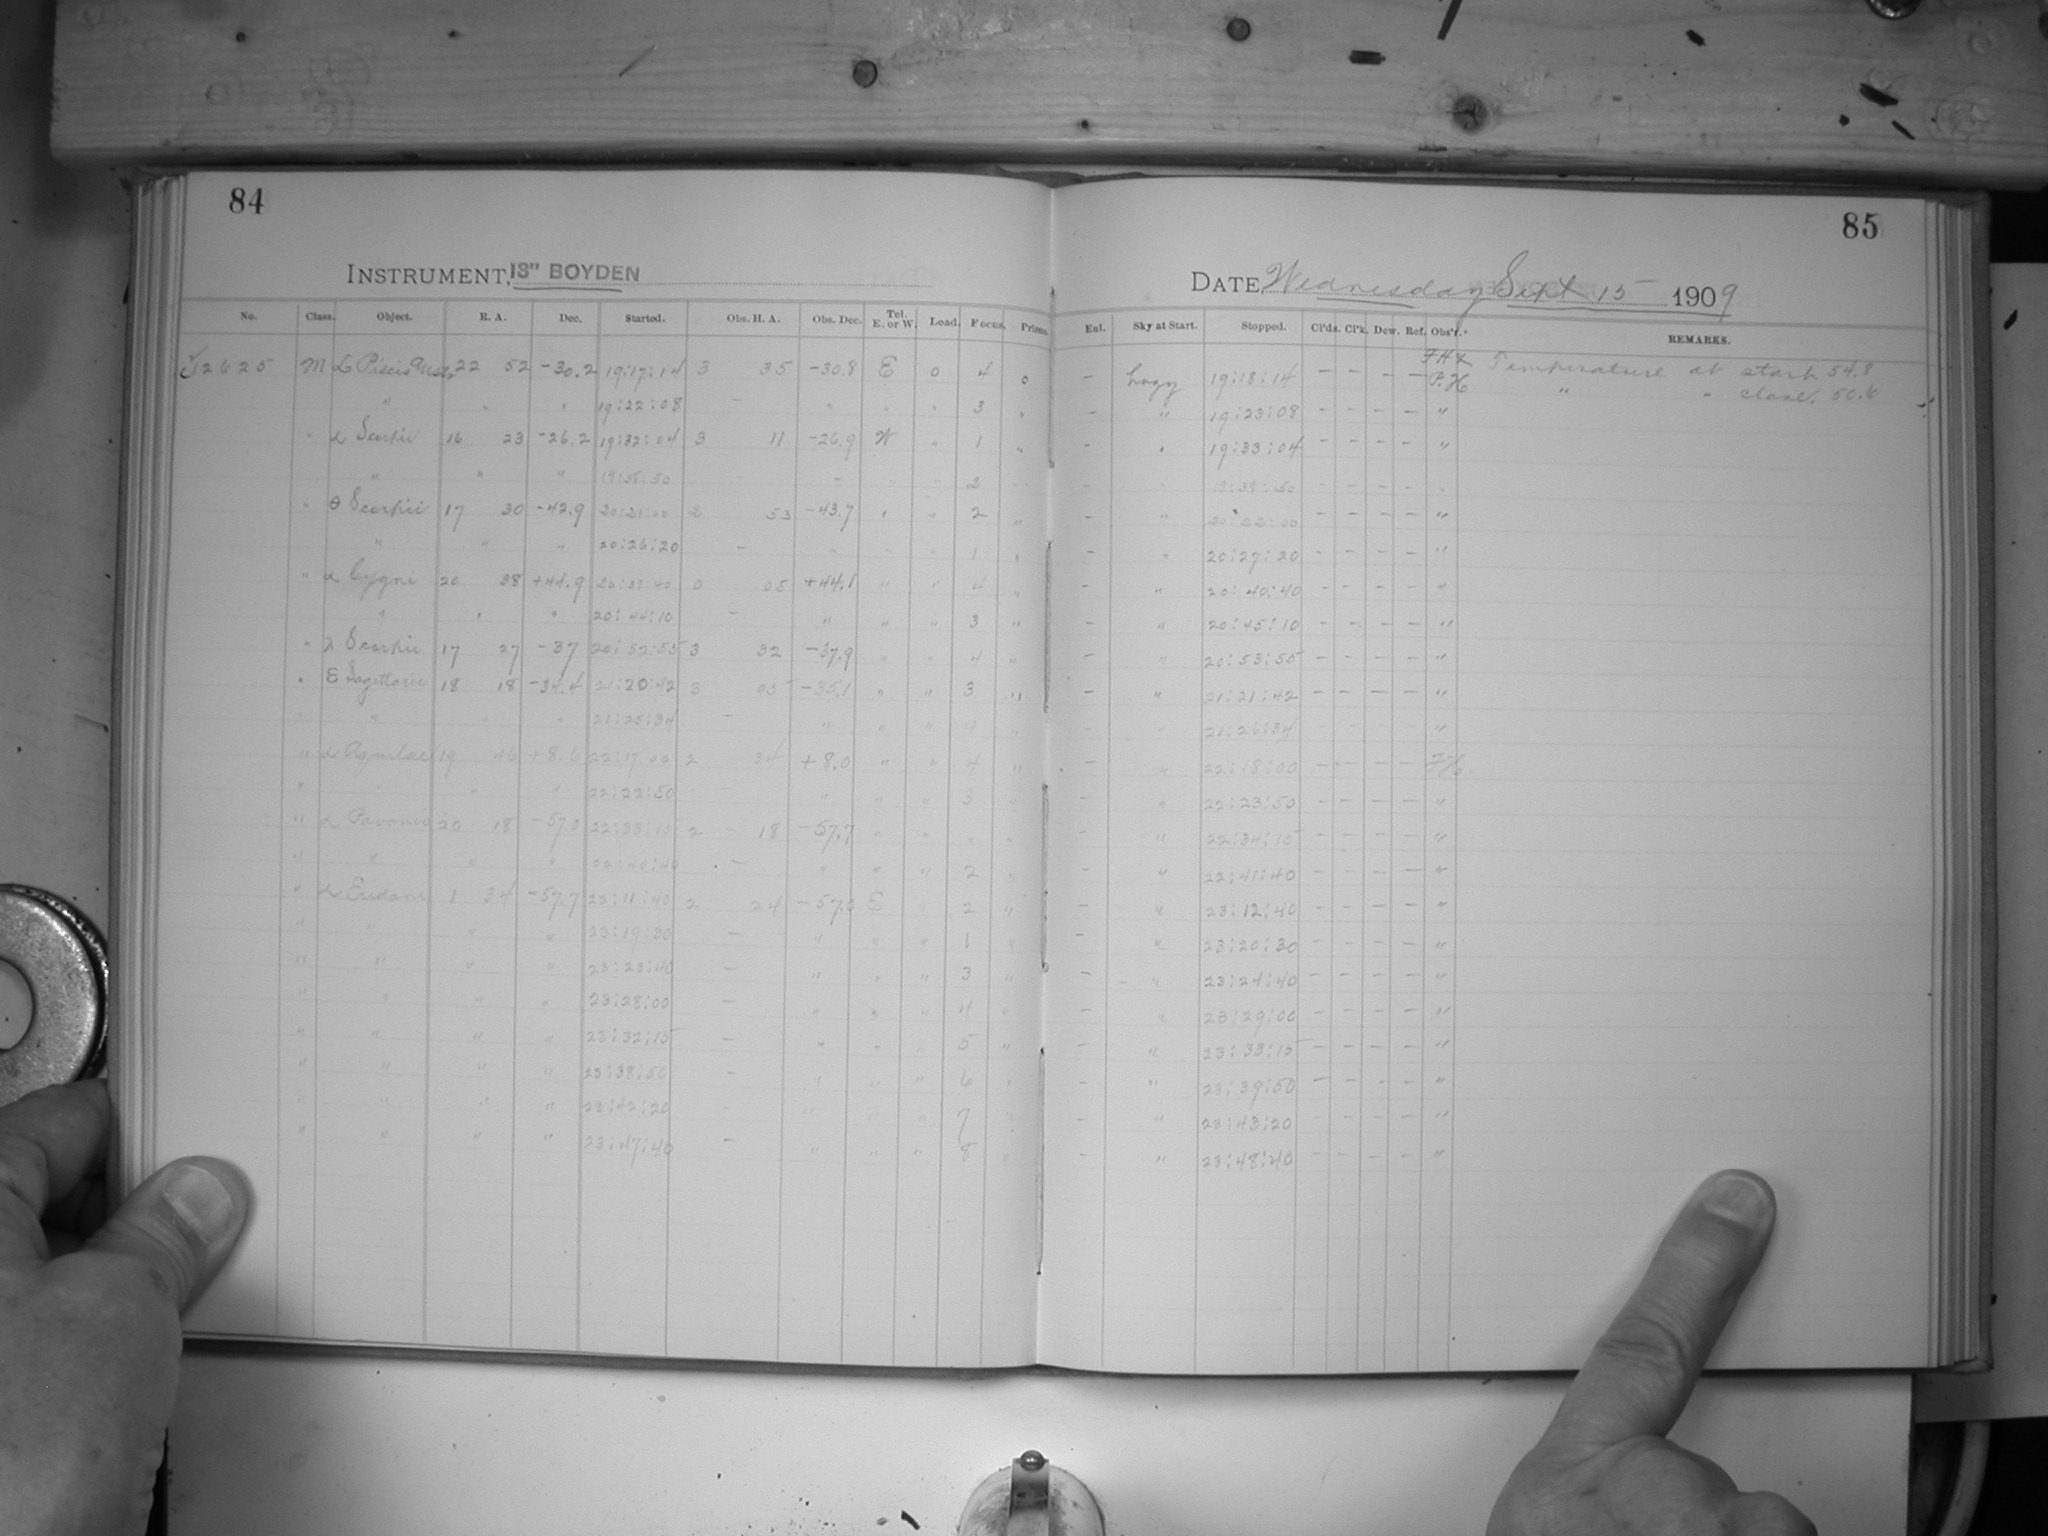 84
85
INSTRUMENT, 13" BOYDEN
DATE Wednesday Sept 15 1909
No. Class. Object. R. A. Dec. Started. Obs. H. A. Obs. Dec. Tel. E. or W. Load. Focus. Prisms. Enl. Sky at Start. Stopped. Cl'ds. Cl'k. Dew. Ref. Obs'r. REMARKS.
12625 M α Piscis 22 52 -30.2 19:17:14 3 35 -30.8 E 0 4 0 - hazy 19:18:14 - - - - P.H. Temperature at start 54.8
" " " 19:22:08 - " " " 3 " - " 19:23:08 - - - - " " " close. 50.6
" α Scorpii 16 23 -26.2 19:32:04 3 11 -26.9 W " 1 " - " 19:33:04 - - - - "
" " " 19:38:50 - " " " 2 " - " 19:39:50 - - - - "
" θ Scorpii 17 30 -42.9 20:21:00 2 53 -43.7 " " 2 " - " 20:22:00 - - - - "
" " " 20:26:20 - " " " 1 " - " 20:27:20 - - - - "
" α Cygni 20 38 +44.9 20:39:40 0 05 +44.1 " " 4 " - " 20:40:40 - - - - "
" " " 20:44:10 - " " " 3 " - " 20:45:10 - - - - "
" λ Scorpii 17 27 -37 20:52:55 3 32 -37.9 " " 4 " - " 20:53:55 - - - - "
" ε Sagittarii 18 18 -34.4 21:20:42 3 05 -35.1 " " 3 " - " 21:21:42 - - - - "
" " " " 21:25:34 - " " " 4 " - " 21:26:34 - - - - "
" α Aquilae 19 46 +8.6 22:17:00 2 34 +8.0 " " 4 " - " 22:18:00 - - - -
" " " " 22:22:50 - " " " 3 " - " 22:23:50 - - - - "
" α Pavonis 20 18 -57.0 22:33:15 2 18 -57.7 " " " " - " 22:34:15 - - - - "
" " " " 22:40:40 - " " " 2 " - " 22:41:40 - - - - "
" α Eridani 1 34 -57.7 23:11:40 2 24 E " 2 " - " 23:12:40 - - - - "
" " " " 23:19:30 - " " " 1 " - " 23:20:30 - - - - "
" " " " 23:23:40 - " " " 3 " - " 23:24:40 - - - - "
" " " " 23:28:00 - " " " 4 " - " 23:29:00 - - - - "
" " " " 23:32:15 - " " " 5 " - " 23:33:15 - - - - "
" " " " 23:38:50 - " " " 6 " - " 23:39:50 - - - - "
" " " " 23:42:20 - " " " 7 " - " 23:43:20 - - - - "
" " " " 23:47:40 - " " " 8 " - " 23:48:40 - - - - "